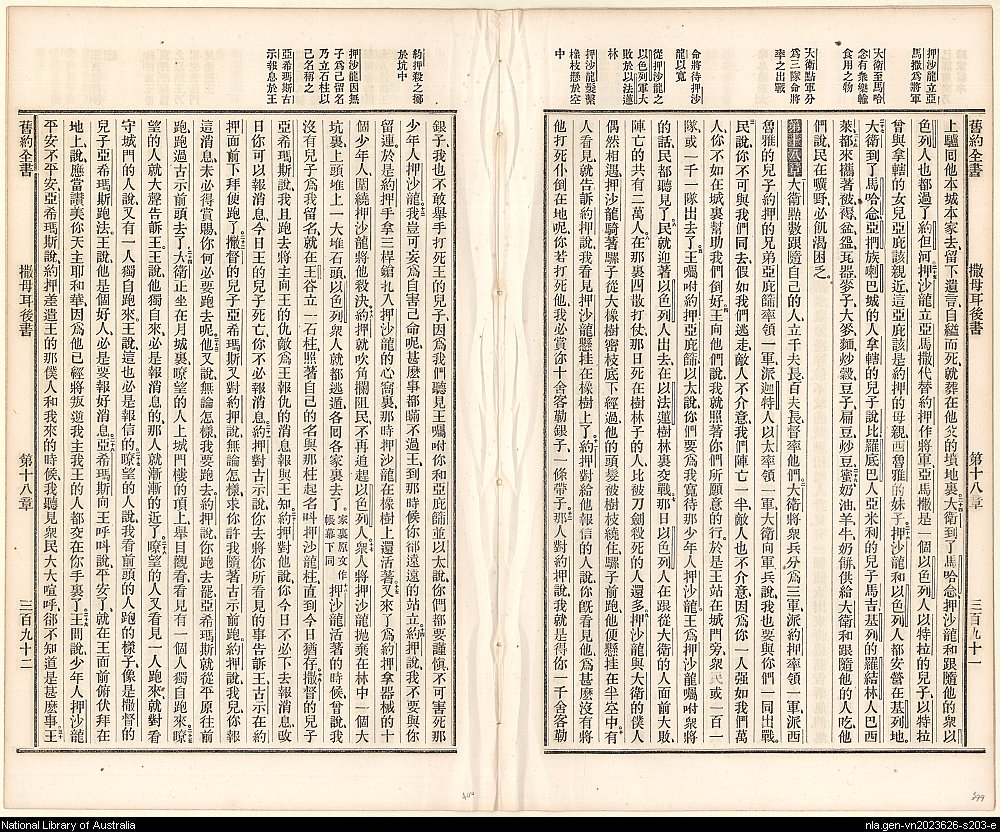 押沙龍立亞
馬撒爲將軍
大衛至馬哈
念有衆樂輸
食用之物
大衛點軍分
爲三隊命將
率之出戰
命將待押沙
龍以寬
從押沙龍之
以色列軍大
敗於以法蓮
林
押沙龍髮繫
橡枝懸於空
中
舊約全書
撒母耳後書
第十八章
三百九十一
上驢回他本城本家去留下遺言自縊而死就葬在他父的墳地裏大衛到了馬哈念押沙龍和跟隨他的衆以
色列人也都過了約但河押沙龍立亞馬撒代替約押作將軍亞馬撒是一個以色列人以特拉的兒子以特拉
曾與拿轄的女兒亞庇該親近這亞庇該是約押的母親西魯雅的妹子押沙龍和以色列人都安營在基列地
大衛到了馬哈念亞捫族喇巴城的人拿轄的兒子說比羅底巴人亞米利的兒子馬吉基列的羅結林人巴西
萊都來攜著被褥盆盌瓦器麥子大麥麵炒穀豆子扁豆炒豆蜜奶油羊牛奶餅供給大衛和跟隨他的人吃他
們說民在曠野必飢渴困乏
第十八章大衛點數跟隨自己的人立千夫長百夫長督率他們大衛將衆兵分爲三軍派約押率領一軍派西
魯雅的兒子約押的兄弟亞庇篩率領一軍派迦特人以太率領一軍大衛向軍兵說我也要與你們一同出戰
民說你不可與我們同去假如我們逃走敵人不介意我們陣亡一半敵人也不介意因爲你一人強如我們萬
人你不如在城裏幫助我們倒好王向他們說我就照著你們所願意的行於是王站在城門旁衆民或一百一
隊或一千一隊出去了王囑咐約押亞庇篩以太說你們要爲我寬待那少年人押沙龍王爲押沙龍囑咐衆將
的話民都聽見了民就迎著以色列人出去在以法蓮樹林裏交戰那日以色列人在跟從大衛的人面前大敗
陣亡的共有二萬人在那裏四散打仗那日死在樹林子的人比被刀劍殺死的人還多押沙龍與大衛的僕人
偶然相遇押沙龍騎著騾子從大橡樹密枝底下經過他的頭髮被樹枝繞住騾子前跑他便懸挂在半空中有
人看見就告訴約押說我看見押沙龍懸挂在橡樹上了約押對給他報信的人說你旣看見他爲甚麼沒有將
他打死仆倒在地呢你若打死他我必賞你十舍客勒銀子一條帶子那人對約押說我就是得你一千舍客勒
約押殺之擲
於坑中
押沙龍因無
子爲己留名
乃立石柱以
己名稱之
亞希瑪斯古
示報息於王
銀子我也不敢舉手打死王的兒子因爲我們聽見王囑咐你和亞庇篩並以太說你們都要謹愼不可害死那
少年人押沙龍我豈可妄爲自害己命呢甚麼事都瞞不過王到那時候你卻遠遠的站立約押說我不要與你
留連於是約押手拿三桿鎗扎入押沙龍的心窩裏那時押沙龍在橡樹上還活著又來了爲約押拿器械的十
個少年人圍繞押沙龍將他殺決約押就吹角攔阻民不再追趕以色列人衆人將押沙龍拋棄在林中一個大
坑裏上頭堆上一大堆石頭以色列衆人就都逃遁各回各家裏去了家裏原文作帳幕下同押沙龍活著的時候曾說我
沒有兒子爲我留名就在王谷立一石柱照著自己的名與那柱起名叫押沙龍柱直到今日猶存撒督的兒子
亞希瑪斯說我且跑去將主向王的仇敵爲王報仇的消息報與王知約押對他說你今日不必下去報消息改
日你可以報消息今日王的兒子死亡你不必報消息約押對古示說你去將你所看見的事告訴王古示在約
押面前下拜便跑了撒督的兒子亞希瑪斯又對約押說無論怎樣求你許我隨著古示前跑約押說我兒你報
這消息未必得賞賜你何必要跑去呢他又說無論怎樣我要跑去約押說你跑去罷亞希瑪斯就從平原往前
跑跑過古示前頭去了大衛正坐在月城裏瞭望的人上城門樓的頂上舉目觀看看見有一個人獨自跑來瞭
望的人就大聲告訴王王說他獨自來必是報消息的那人就漸漸的近了瞭望的人又看見一人跑來就對看
守城門的人說又有一人獨自跑來王說這也必是報信的瞭望的人說我看前頭的人跑的樣子像是撒督的
兒子亞希瑪斯跑法王說他是個好人必是要報好消息亞希瑪斯向王呼叫說平安了就在王面前俯伏拜在
地上說應當讚美你天主耶和華因爲他已經將叛逆我主我王的人都交在你手裏了王問說少年人押沙龍
平安不平安亞希瑪斯說約押差遣王的那僕人和我來的時候我聽見衆民大大喧呼卻不知道是甚麼事王
舊約全書
撒母耳後書
第十八章
三百九十二
400
399
National Library of Australia
nla.gen-vn2023626-s203-e